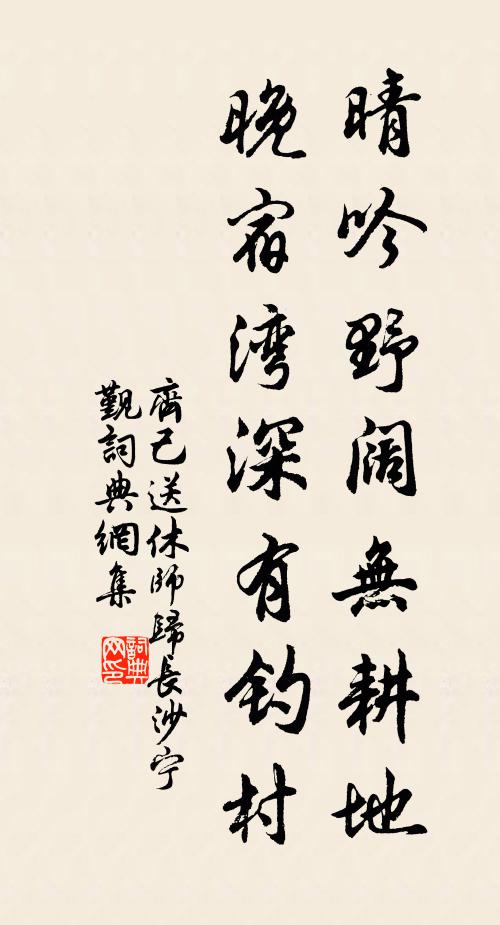 晴吟野阔無耕地
晚宿湾深有钓村
齊己送休師歸長沙宁
觐詞典網集
詞典
网印